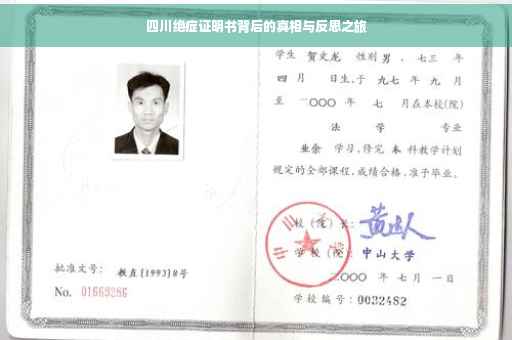 四川绝症证明书背后的真相与反思之旅
学生 贺文龙 性别 男 ，七三 年
四 月 日生,于 九七 年 九 月
至 二〇〇〇 年 七 月在本校(院)
法 学 专业
业余 学习,修完 本 科教学计划
规定的全部课程,成绩合格,准予毕业。
校（院）长：
学校（院）：中山大学
二〇〇〇 年 七 月 一 日
批准文号： 教直[1993]8号
No. 01669286
学校编号：0032482